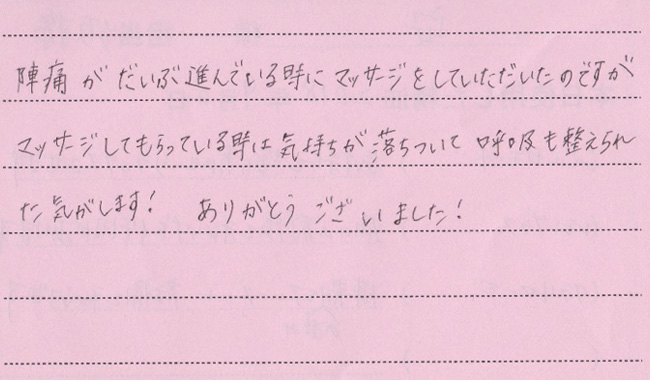 陣痛がだいぶ進んでいる時にマッサージをしていただいたのですが
マッサージしてもらっている時は気持ちが落ちついて呼吸も整えられ
た気がします！　ありがとうございました！